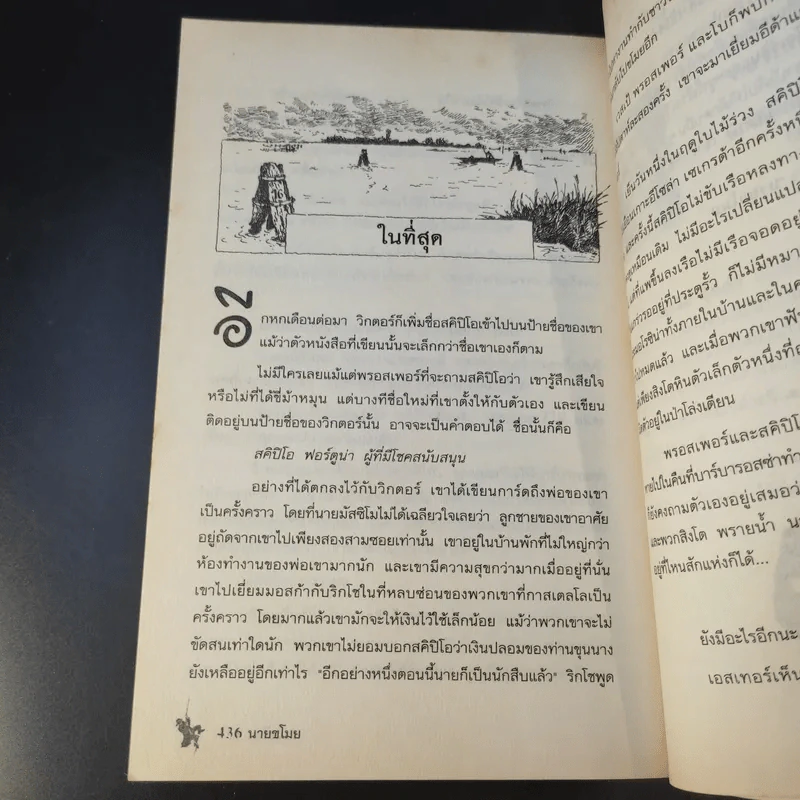 ในที่สุด
อีกหกเดือนต่อมา วิกตอร์ก็เพิ่มชื่อสคิปิโอเข้าไปบนป้ายชื่อของเขา
แม้ว่าตัวหนังสือที่เขียนนั้นจะเล็กกว่าชื่อเขาเองก็ตาม
ไม่มีใครเลยแม้แต่พรอสเพอร์ที่จะถามสคิปิโอว่า เขารู้สึกเสียใจ
หรือไม่ที่ได้ขี่ม้าหมุน แต่บางทีชื่อใหม่ที่เขาตั้งให้กับตัวเอง และเขียน
ติดอยู่บนป้ายชื่อของวิกตอร์นั้น อาจจะเป็นคำตอบได้ ชื่อนั้นก็คือ
สคิปิโอ ฟอร์ตูน่า ผู้ที่มีโชคสนับสนุน
อย่างที่ได้ตกลงไว้กับวิกตอร์ เขาได้เขียนการ์ดถึงพ่อของเขา
เป็นครั้งคราว โดยที่นายมัสซิโมไม่ได้เฉลียวใจเลยว่า ลูกชายของเขาอาศัย
อยู่ถัดจากเขาไปเพียงสองสามซอยเท่านั้น เขาอยู่ในบ้านพักที่ไม่ใหญ่กว่า
ห้องทำงานของพ่อเขามากนัก และเขามีความสุขกว่ามากเมื่ออยู่ที่นั่น
เขาไปเยี่ยมมอสก้ากับริกโชในที่หลบซ่อนของพวกเขาที่กาสเตลโลเป็น
ครั้งคราว โดยมากแล้วเขามักจะให้เงินไว้ใช้เล็กน้อย แม้ว่าพวกเขาจะไม่
ขัดสนเท่าใดนัก พวกเขาไม่ยอมบอกสคิปิโอว่าเงินปลอมของท่านขุนนาง
ยังเหลืออยู่อีกเท่าไร "อีกอย่างหนึ่งตอนนี้นายก็เป็นนักสืบแล้ว" ริกโชพูด
436 นายขโมย
พรอสเพอร์ และโบก็พบ
เขาจะมาเยี่ยมอีด้า
เย็นวันหนึ่งในฤดูใบไม้ร่วง
เกาะอีโซล่า เซเกรต้าอีกครั้งหนึ่ง
และครั้งนี้สคิปิโอไม่ขับเรือหลงทาง
เหมือนเดิม ไม่มีอะไรเปลี่ยนแปล
ไม่มีเรือจอดอยู่
รออยู่ที่ประตูรั้ว ก็ไม่มีหมา
ทั้งภายในบ้านและใน
และเมื่อพวกเขา
เพียงสิงโตหินตัวเล็กตัวหนึ่งที่
ตัวอยู่ในป่าโล่งเตียน
พรอสเพอร์และสคิปิโ
ไปในคืนที่บาร์บารอสซ่าทำ
ก็ยังคงถามตัวเองอยู่เสมอว่
และพวกสิงโต พรายน้ำ
อยู่ที่ไหนสักแห่งก็ได้...
ยังมีอะไรอีกนะ
เอสเทอร์เห็น